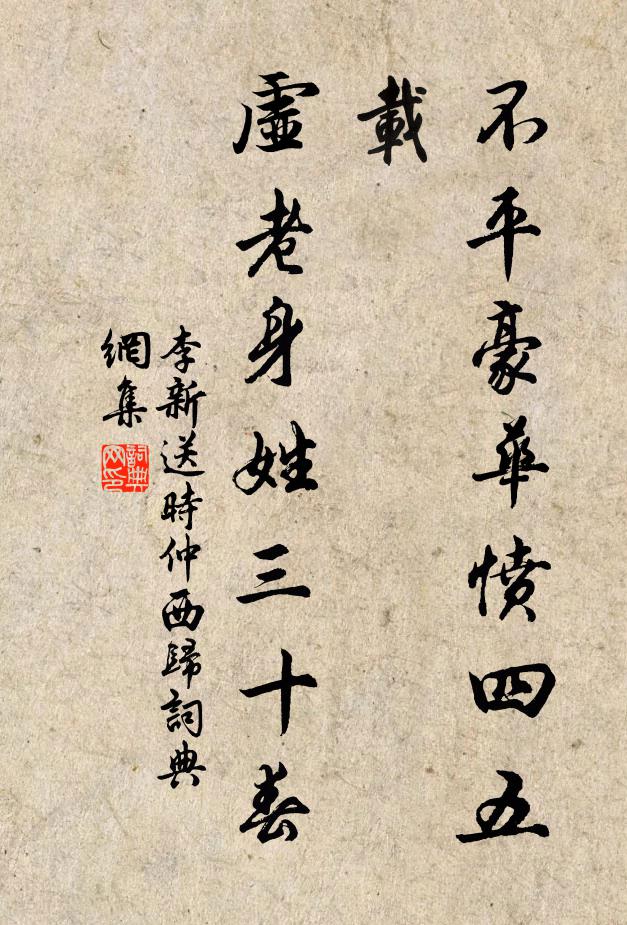 不平豪華憤四五
載
虛老身姓三十春
李新送時仲西歸詞典
網集
詞典網印